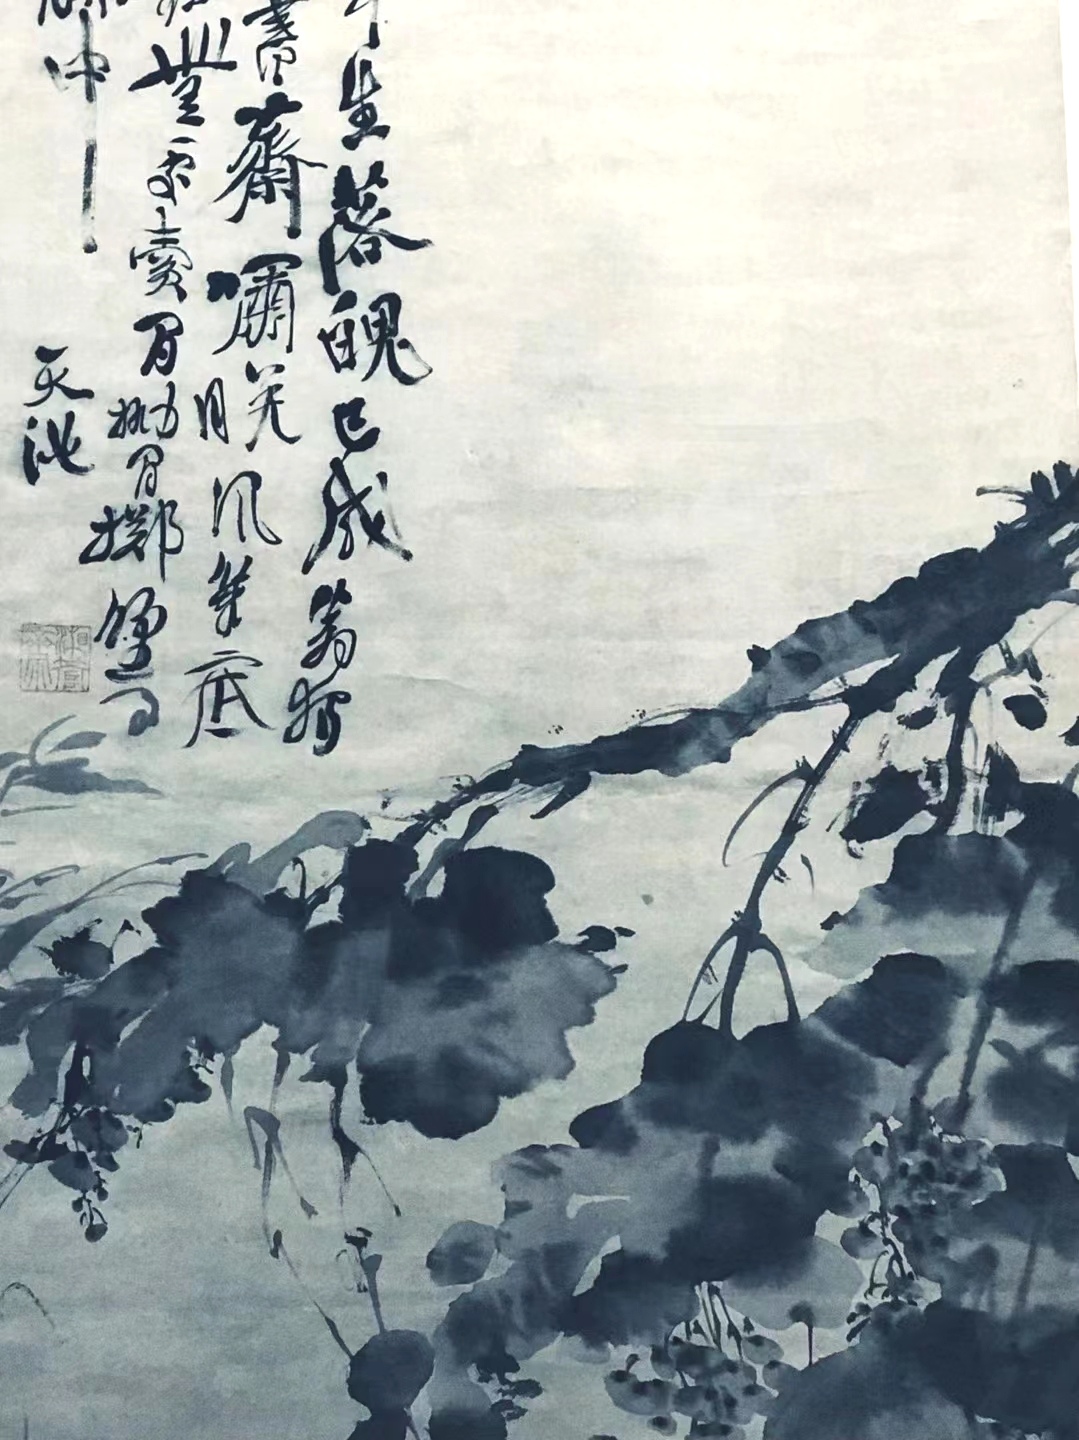 生落魄已成翁獨
書齋嘯晚風筆底
無處賣閒拋閒擲野
中
天池